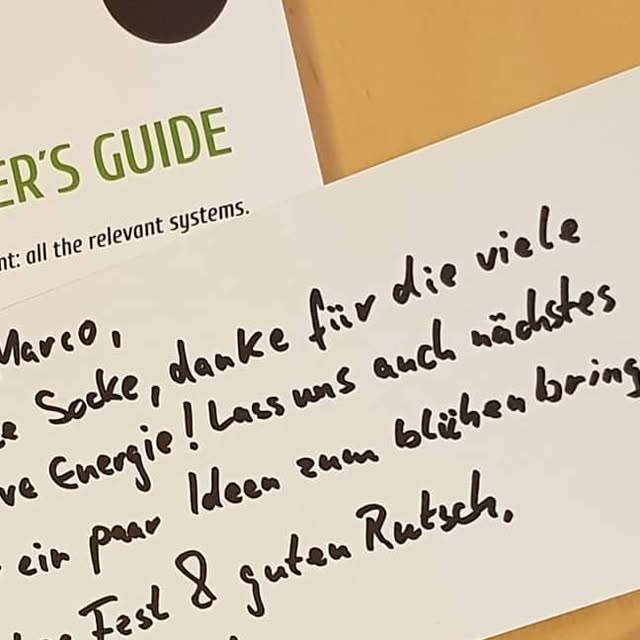 ER'S GUIDE
nt: all the relevant systems.
Marco,
e Socke, danke für die viele
ve Energie! Lass uns auch nächstes
ein paar Ideen zum blühen bring
Fest & guten Rutsch.